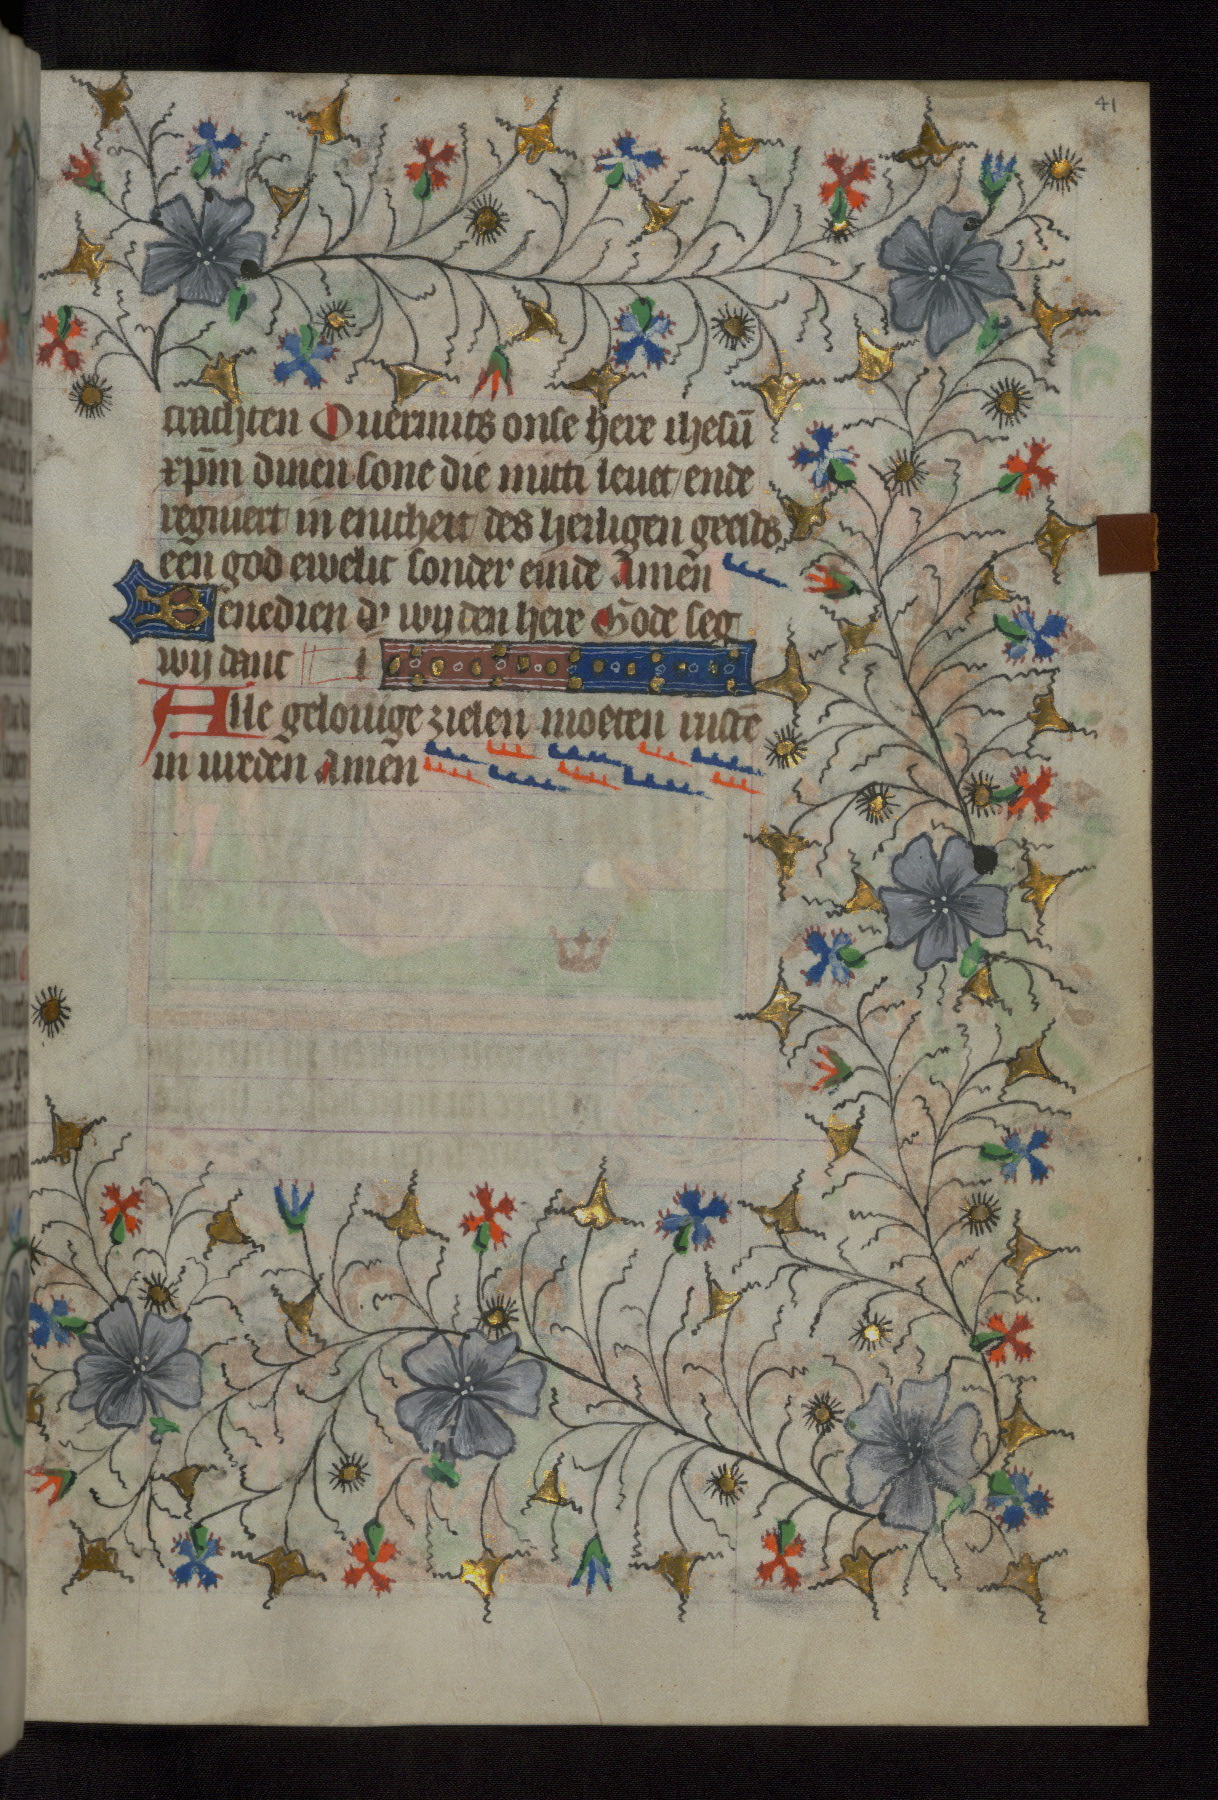 41
trachten Ouermits onse here ihesū
xp̄m dinen sone die mitti leuet / ende
regniert in enicheit des heiligen geests
een god ewelic sonder einde Amen
Benedien wij den here Gode seg
wij danc
Alle gelouige zielen moeten rustē
in vreden Amen